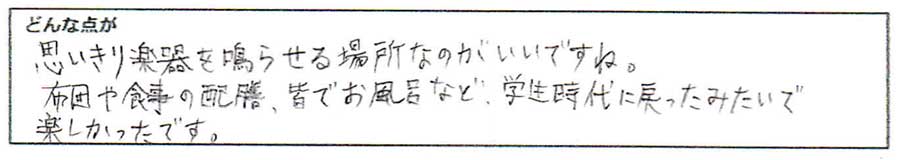 どんな点が
思いきり楽器を鳴らせる場所なのがいいですね。
布団や食事の配膳、皆でお風呂など、学生時代に戻ったみたいで
楽しかったです。